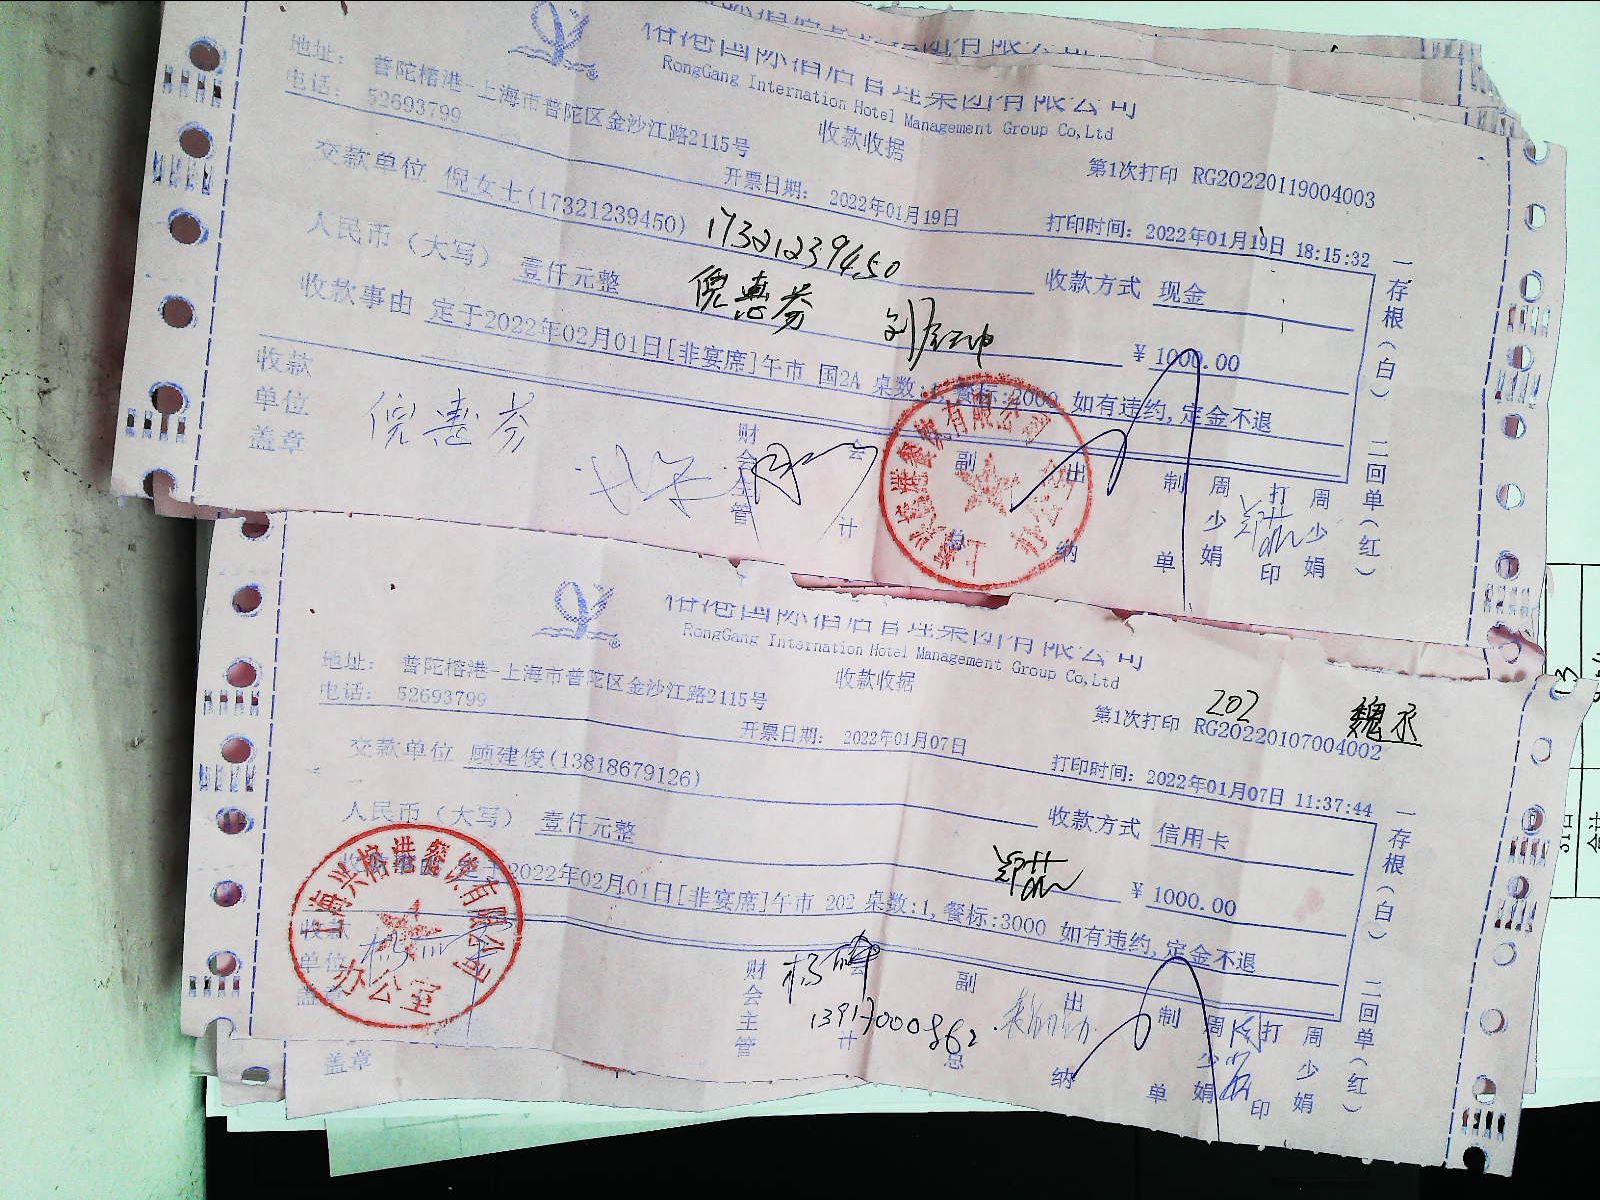 榕港国际酒店管理集团有限公司
RongGang Internation Hotel Management Group Co,Ltd
地址： 普陀榕港-上海市普陀区金沙江路2115号
电话： 52693799
收款收据
第1次打印 RG20220119004003
开票日期： 2022年01月19日
打印时间：2022年01月19日 18:15:32
交款单位 倪女士(17321239450) 17321239450
收款方式 现金
人民币（大写） 壹仟元整 倪惠芬
¥ 1000.00
收款事由 定于2022年02月01日[非宴席]午市 国2A 桌数:1,餐标:2000 如有违约,定金不退
收款单位盖章 倪惠芬
财会主管
会计
副总
出纳
制单
周少娟
打印
周少娟
一存根（白） 二回单（红）
上海兴榕港餐饮有限公司
办公室
榕港国际酒店管理集团有限公司
RongGang Internation Hotel Management Group Co,Ltd
地址： 普陀榕港-上海市普陀区金沙江路2115号
电话： 52693799
收款收据
202 魏丞
第1次打印 RG20220107004002
开票日期： 2022年01月07日
打印时间：2022年01月07日 11:37:44
交款单位 顾建俊(13818679126)
收款方式 信用卡
人民币（大写） 壹仟元整
¥ 1000.00
收款事由 定于2022年02月01日[非宴席]午市 202 桌数:1,餐标:3000 如有违约,定金不退
收款单位盖章
财会主管
会计
13917000862
副总
出纳
制单
周少娟
打印
周少娟
一存根（白） 二回单（红）
上海兴榕港餐饮有限公司
办公室
盖章
合计